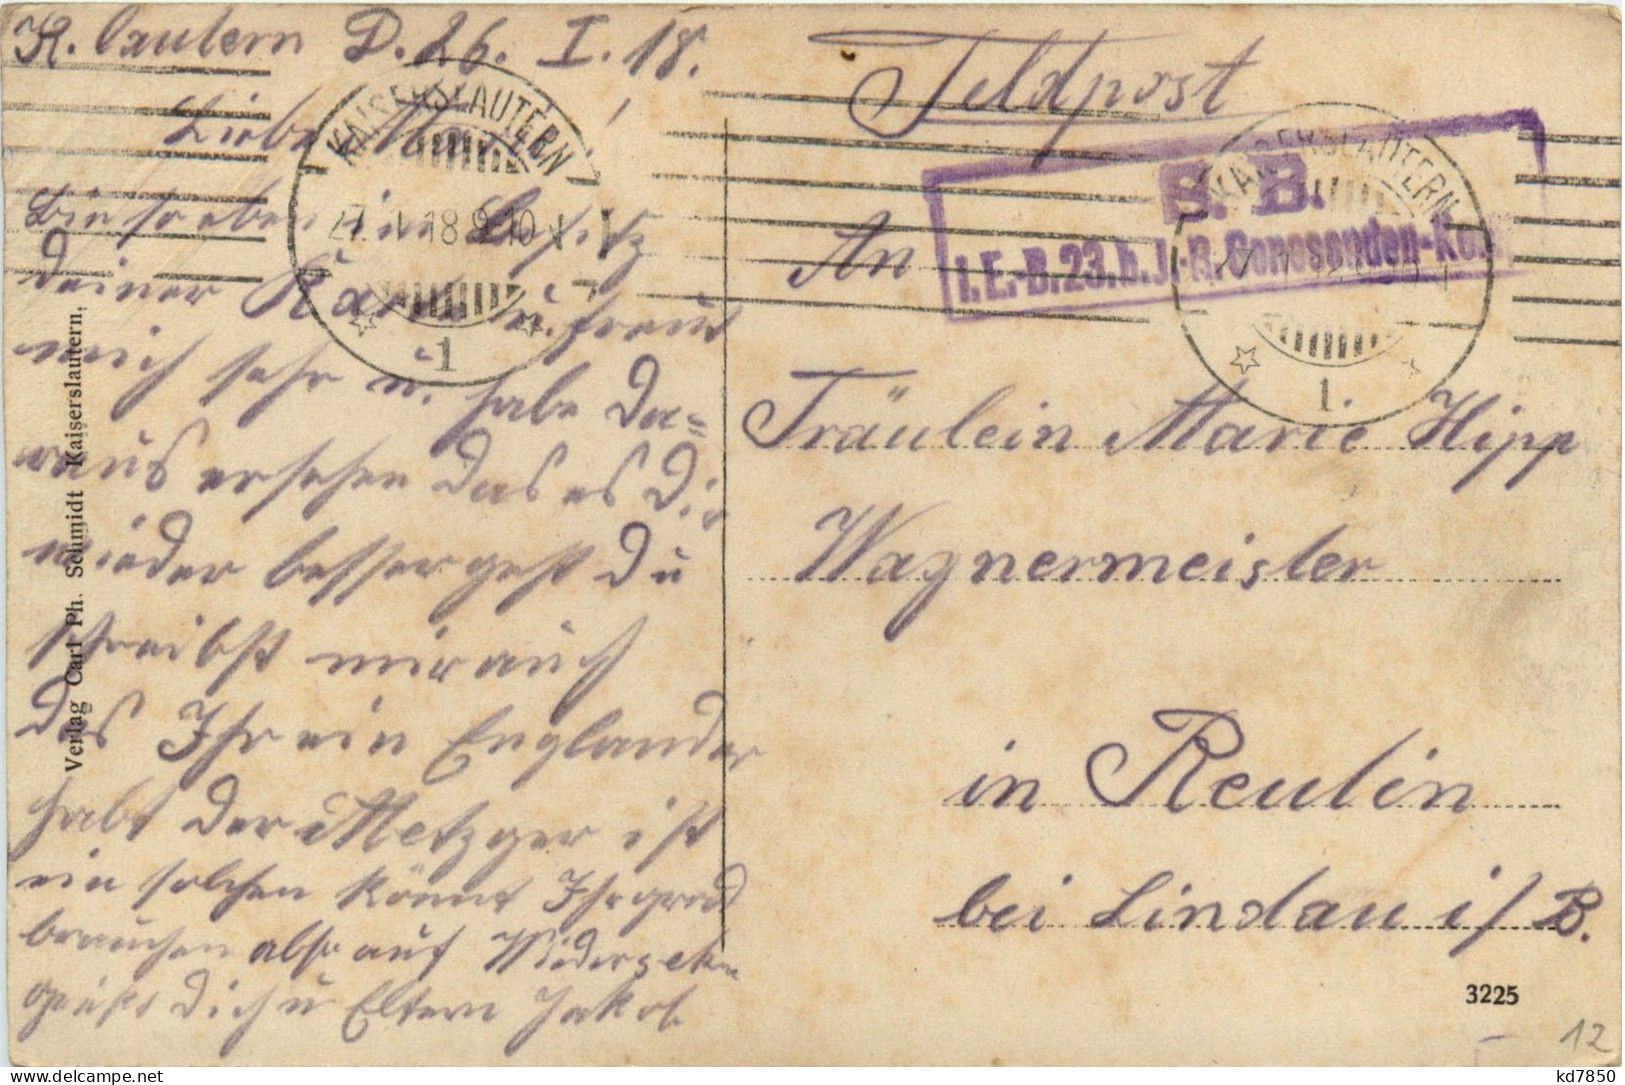 K. lautern D. 26. I. 18.
Liebe Marie!
Bin soeben im Besitz
Deiner Karte u. freut
mich sehr u. habe Da=
raus ersehen das es Dir
wieder besser geht Du
schreibst mir auch
das Ihr ein Englander
habt der Metzger ist
ein solchen könnt Ihr grad
brauchen also auf Widersehn
grüßt Dich u Eltern Jakob
Verlag Carl Ph. Schmidt Kaiserslautern.
KAISERSLAUTERN
27. 1. 18 9-10
1
Feldpost
S. B.
I. E.-B. 23. b. J.-R. Genesenden-Ko
KAISERSLAUTERN
1.
An
Fräulein Marie Hipp
Wagnermeister
in Reutin
bei Lindau i/B.
3225
12
kd7850